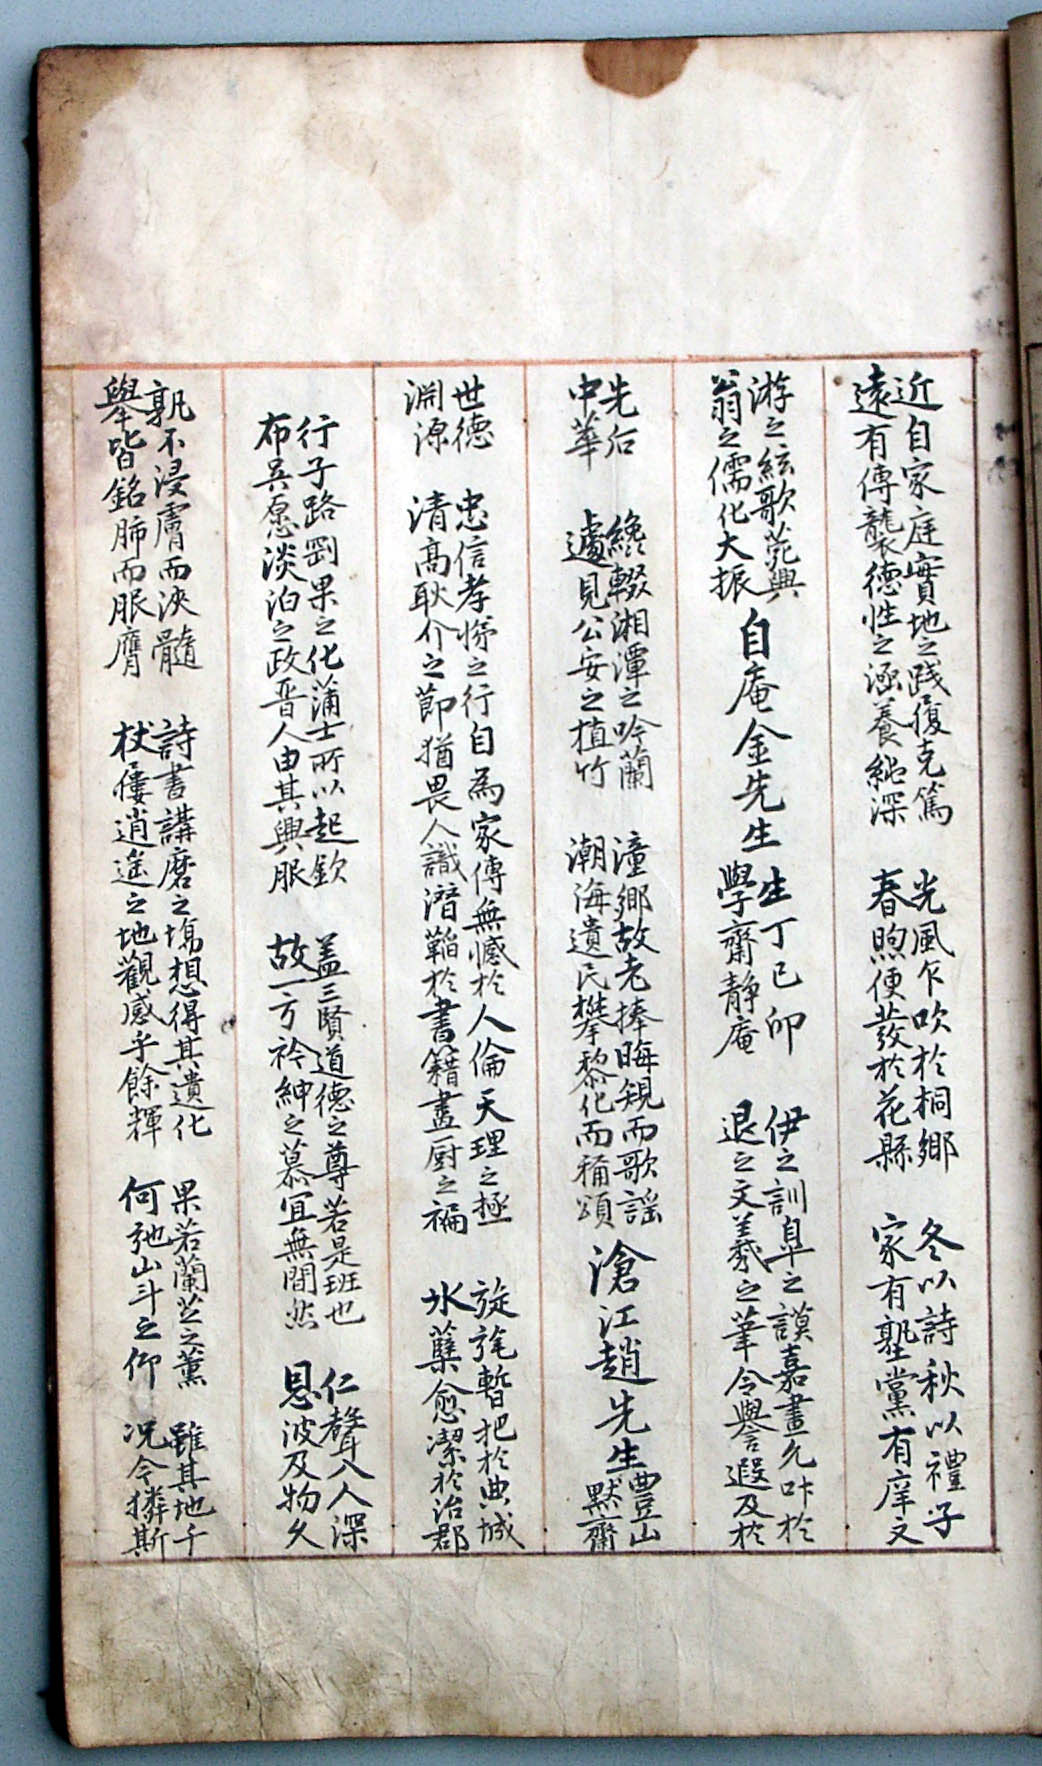 近自家庭實地之踐履克篤 光風乍吹於桐鄉 冬以詩秋以禮子
遠有傳襲德性之涵養純深 春煦便發於花縣 家有塾黨有庠文
游之絃歌菀興 自庵金先生 生丁己卯 伊之訓皐之謨嘉晝允叶於
翁之儒化大振 學齋靜庵 退之文羲之筆令譽遐及於
先后 纔輟湘潭之吟蘭 潼鄉故老捧晦規而歌謠 滄江趙先生 豐山
中華 遽見公安之植竹 潮海遺民攀黎化而稱頌 默齋
世德 忠信孝悌之行自為家傳無憾於人倫天理之極 旋旄暫把於典城
淵源 清高耿介之節猶畏人識潛韜於書籍畫厨之褊 氷蘗愈潔於治郡
行子路剛果之化蒲士所以起欽 盖三賢道德之尊若是班也 仁聲入人深
布吳愿淡泊之政晋人由其興服 故一方衿紳之慕宜無間然 恩波及物久
孰不浸膚而浹髓 詩書講磨之塲想得其遺化 果若蘭芷之薰 雖其地千
擧皆銘肺而服膺 杖屨逍遙之地觀感乎餘輝 何弛山斗之仰 况今擠斯